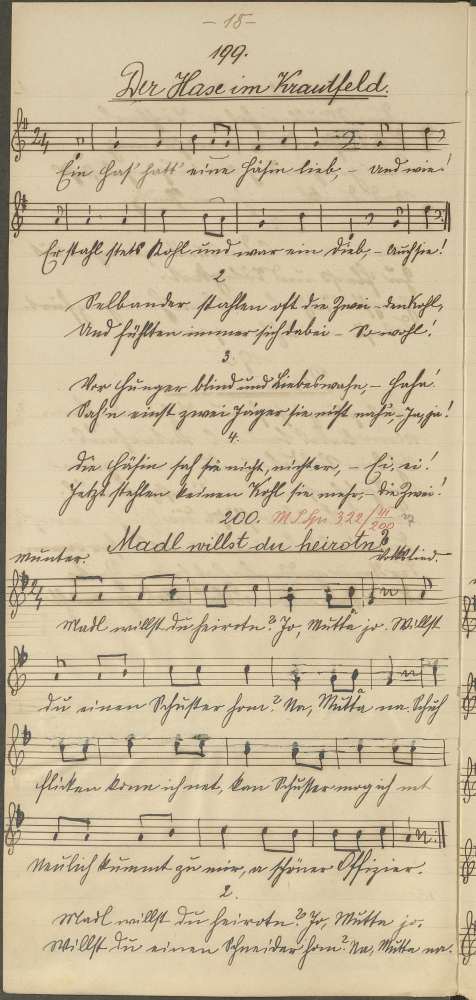 - 15 -
199.
Der Hase im Krautfeld.
2/4
Ein Has' hatt' eine Häsin lieb, - und wie!
Er stahl stets Kohl und war ein Dieb, - auch sie!
2
Selbander stahlen oft die Zwei - den Kohl,
Und fühlten immer sich dabei - So wohl!
3.
Vor Hunger blind und Liebeswahn, - haha!
Sah'n einst zwei Jäger sie nicht nah'n, - Ja, ja!
4.
Die Häsin sah sie nicht, nicht er, - Ei, ei!
Jetzt stehlen keinen Kohl sie mehr, - die Zwei!
200. 322/ 200
Madl willst du heirotn?
Munter. Volkslied.
2/4
Madl willst du heirotn? Jo, Mutta jo. Willst
du einen Schuster hom? Na, Mutta na. Schuh
flicken konn ich net, kan Schuster mog ich net
Neulich kummt zu mir, a schöner Offizier.
2.
Madl willst du heirotn? Jo, Mutta jo.
Willst du einen Schneider hom? Na, Mutta na.